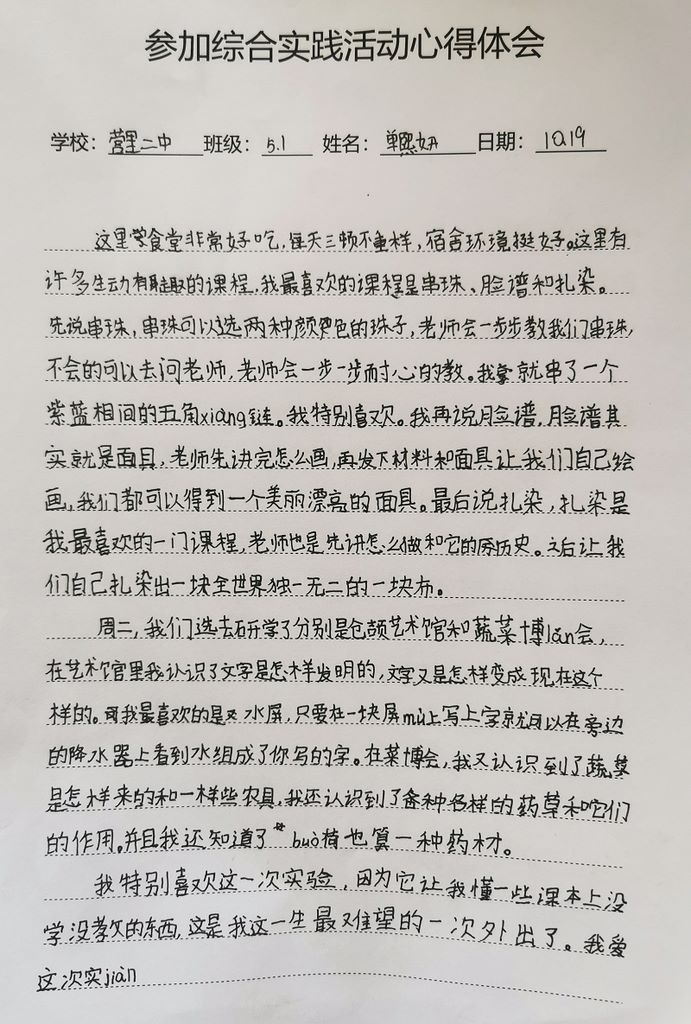 参加综合实践活动心得体会
学校：营里二中 班级：5.1 姓名：单熙妍 日期：10.19
这里食堂非常好吃，每天三顿不重样，宿舍环境挺好。这里有
许多生动有趣的课程，我最喜欢的课程是串珠、脸谱和扎染。
先说串珠，串珠可以选两种颜色的珠子，老师会一步步教我们串珠，
不会的可以去问老师，老师会一步一步耐心的教。我就串了一个
紫蓝相间的五角xiàng链。我特别喜欢。我再说脸谱，脸谱其
实就是面具，老师先讲完怎么画，再发下材料和面具让我们自己绘
画，我们都可以得到一个美丽漂亮的面具。最后说扎染，扎染是
我最喜欢的一门课程，老师也是先讲怎么做和它的历史。之后让我
们自己扎染出一块全世界独一无二的一块布。
周二，我们选去研学了分别是仓颉艺术馆和蔬菜博lǎn会，
在艺术馆里我认识了文字是怎样发明的，文字又是怎样变成现在这个
样的。我最喜欢的是水屏，只要在一块屏mù上写上字就可以在旁边
的降水器上看到水组成了你写的字。在菜博会，我又认识到了蔬菜
是怎样来的和一样些农具，我还认识到了各种各样的药草和它们
的作用。并且我还知道了buò荷也算一种药材。
我特别喜欢这一次实验，因为它让我懂一些课本上没
学没教的东西，这是我这一生最难望的一次外出了。我爱
这次实jiàn